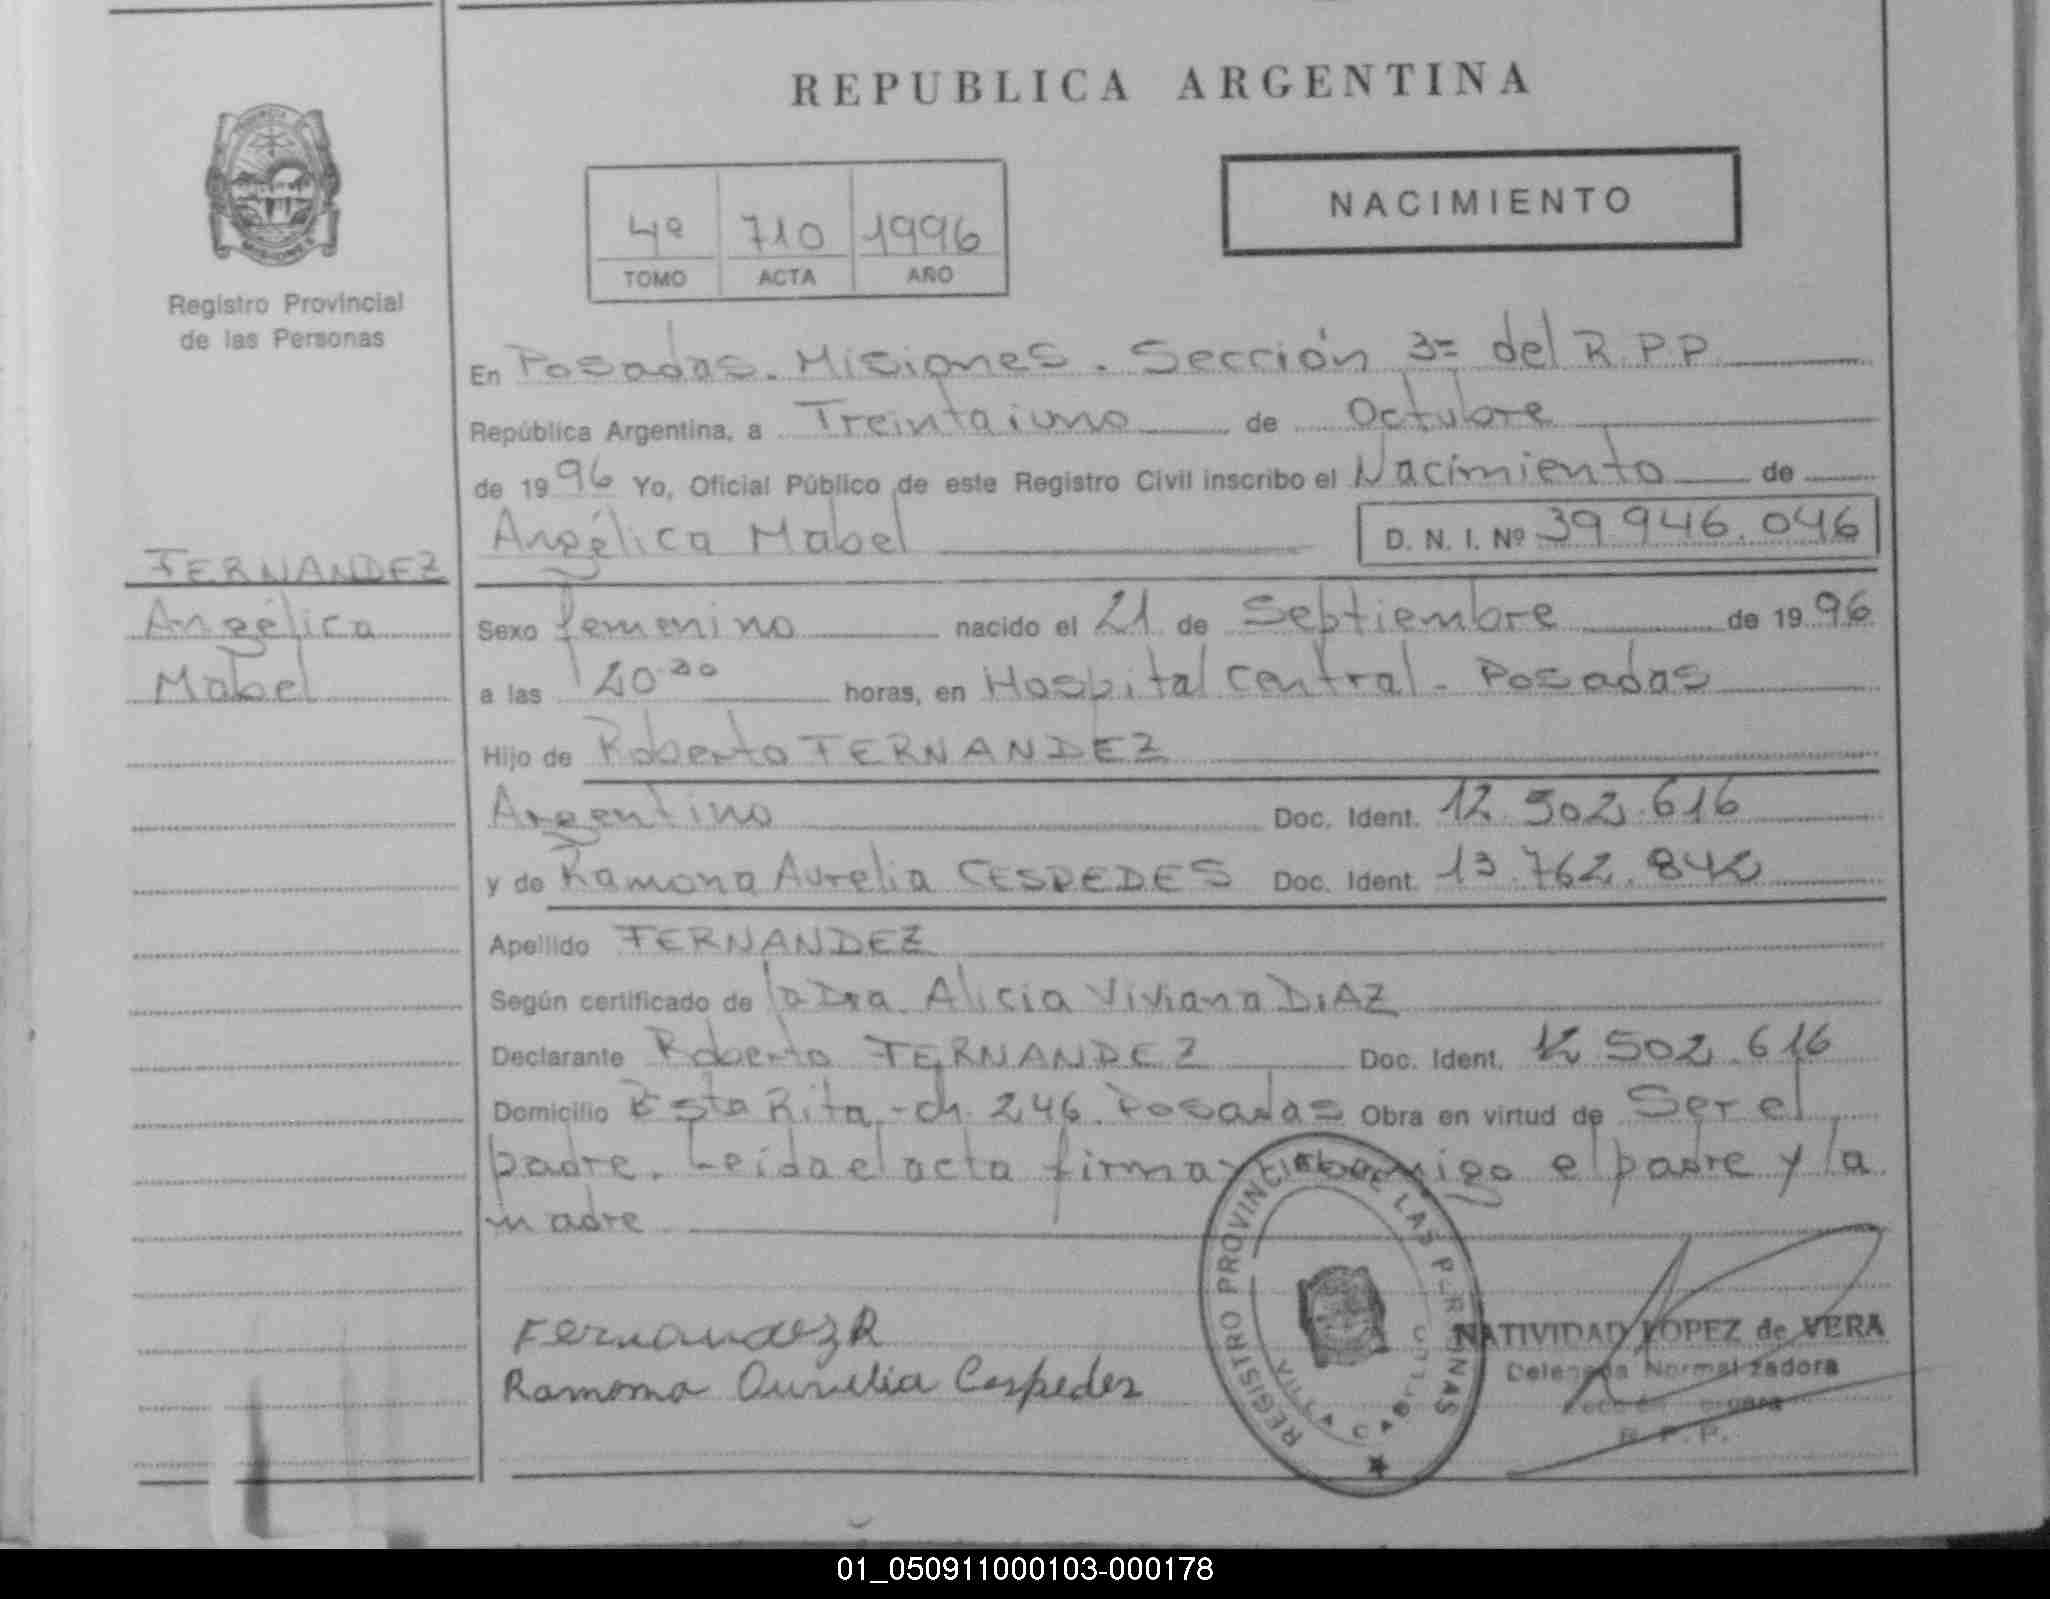 REPUBLICA ARGENTINA
NACIMIENTO
4º 710 1996
TOMO ACTA AÑO
Registro Provincial
de las Personas
En Posadas. Misiones. Sección 3ª del R.P.P.
República Argentina, a Treintaiuno de Octubre
de 1996 Yo, Oficial Público de este Registro Civil inscribo el Nacimiento de
Angélica Mabel D. N. I. Nº 39 946.046
FERNANDEZ
Angélica
Mabel
Sexo femenino nacido el 21 de Septiembre de 1996
a las horas, en Hospital Central - Posadas
Hijo de Roberto FERNANDEZ
Argentino Doc. Ident. 12.502.616
y de Ramona Aurelia CESPEDES Doc. Ident. 13.762.842
Apellido FERNANDEZ
Según certificado de la Dra. Alicia Viviana DIAZ
Declarante Roberto FERNANDEZ Doc. Ident. 12 502.616
Domicilio Bº Sta Rita - ch. 246. Posadas Obra en virtud de Ser el
padre. Leída el acta firman conmigo el padre y la
madre
Fernandez R
Ramona Aurelia Cespedes
REGISTRO PROVINCIAL DE LAS PERSONAS
NATIVIDAD LOPEZ de VERA
Delegada Normalizadora
R.P.P.
01_050911000103-000178